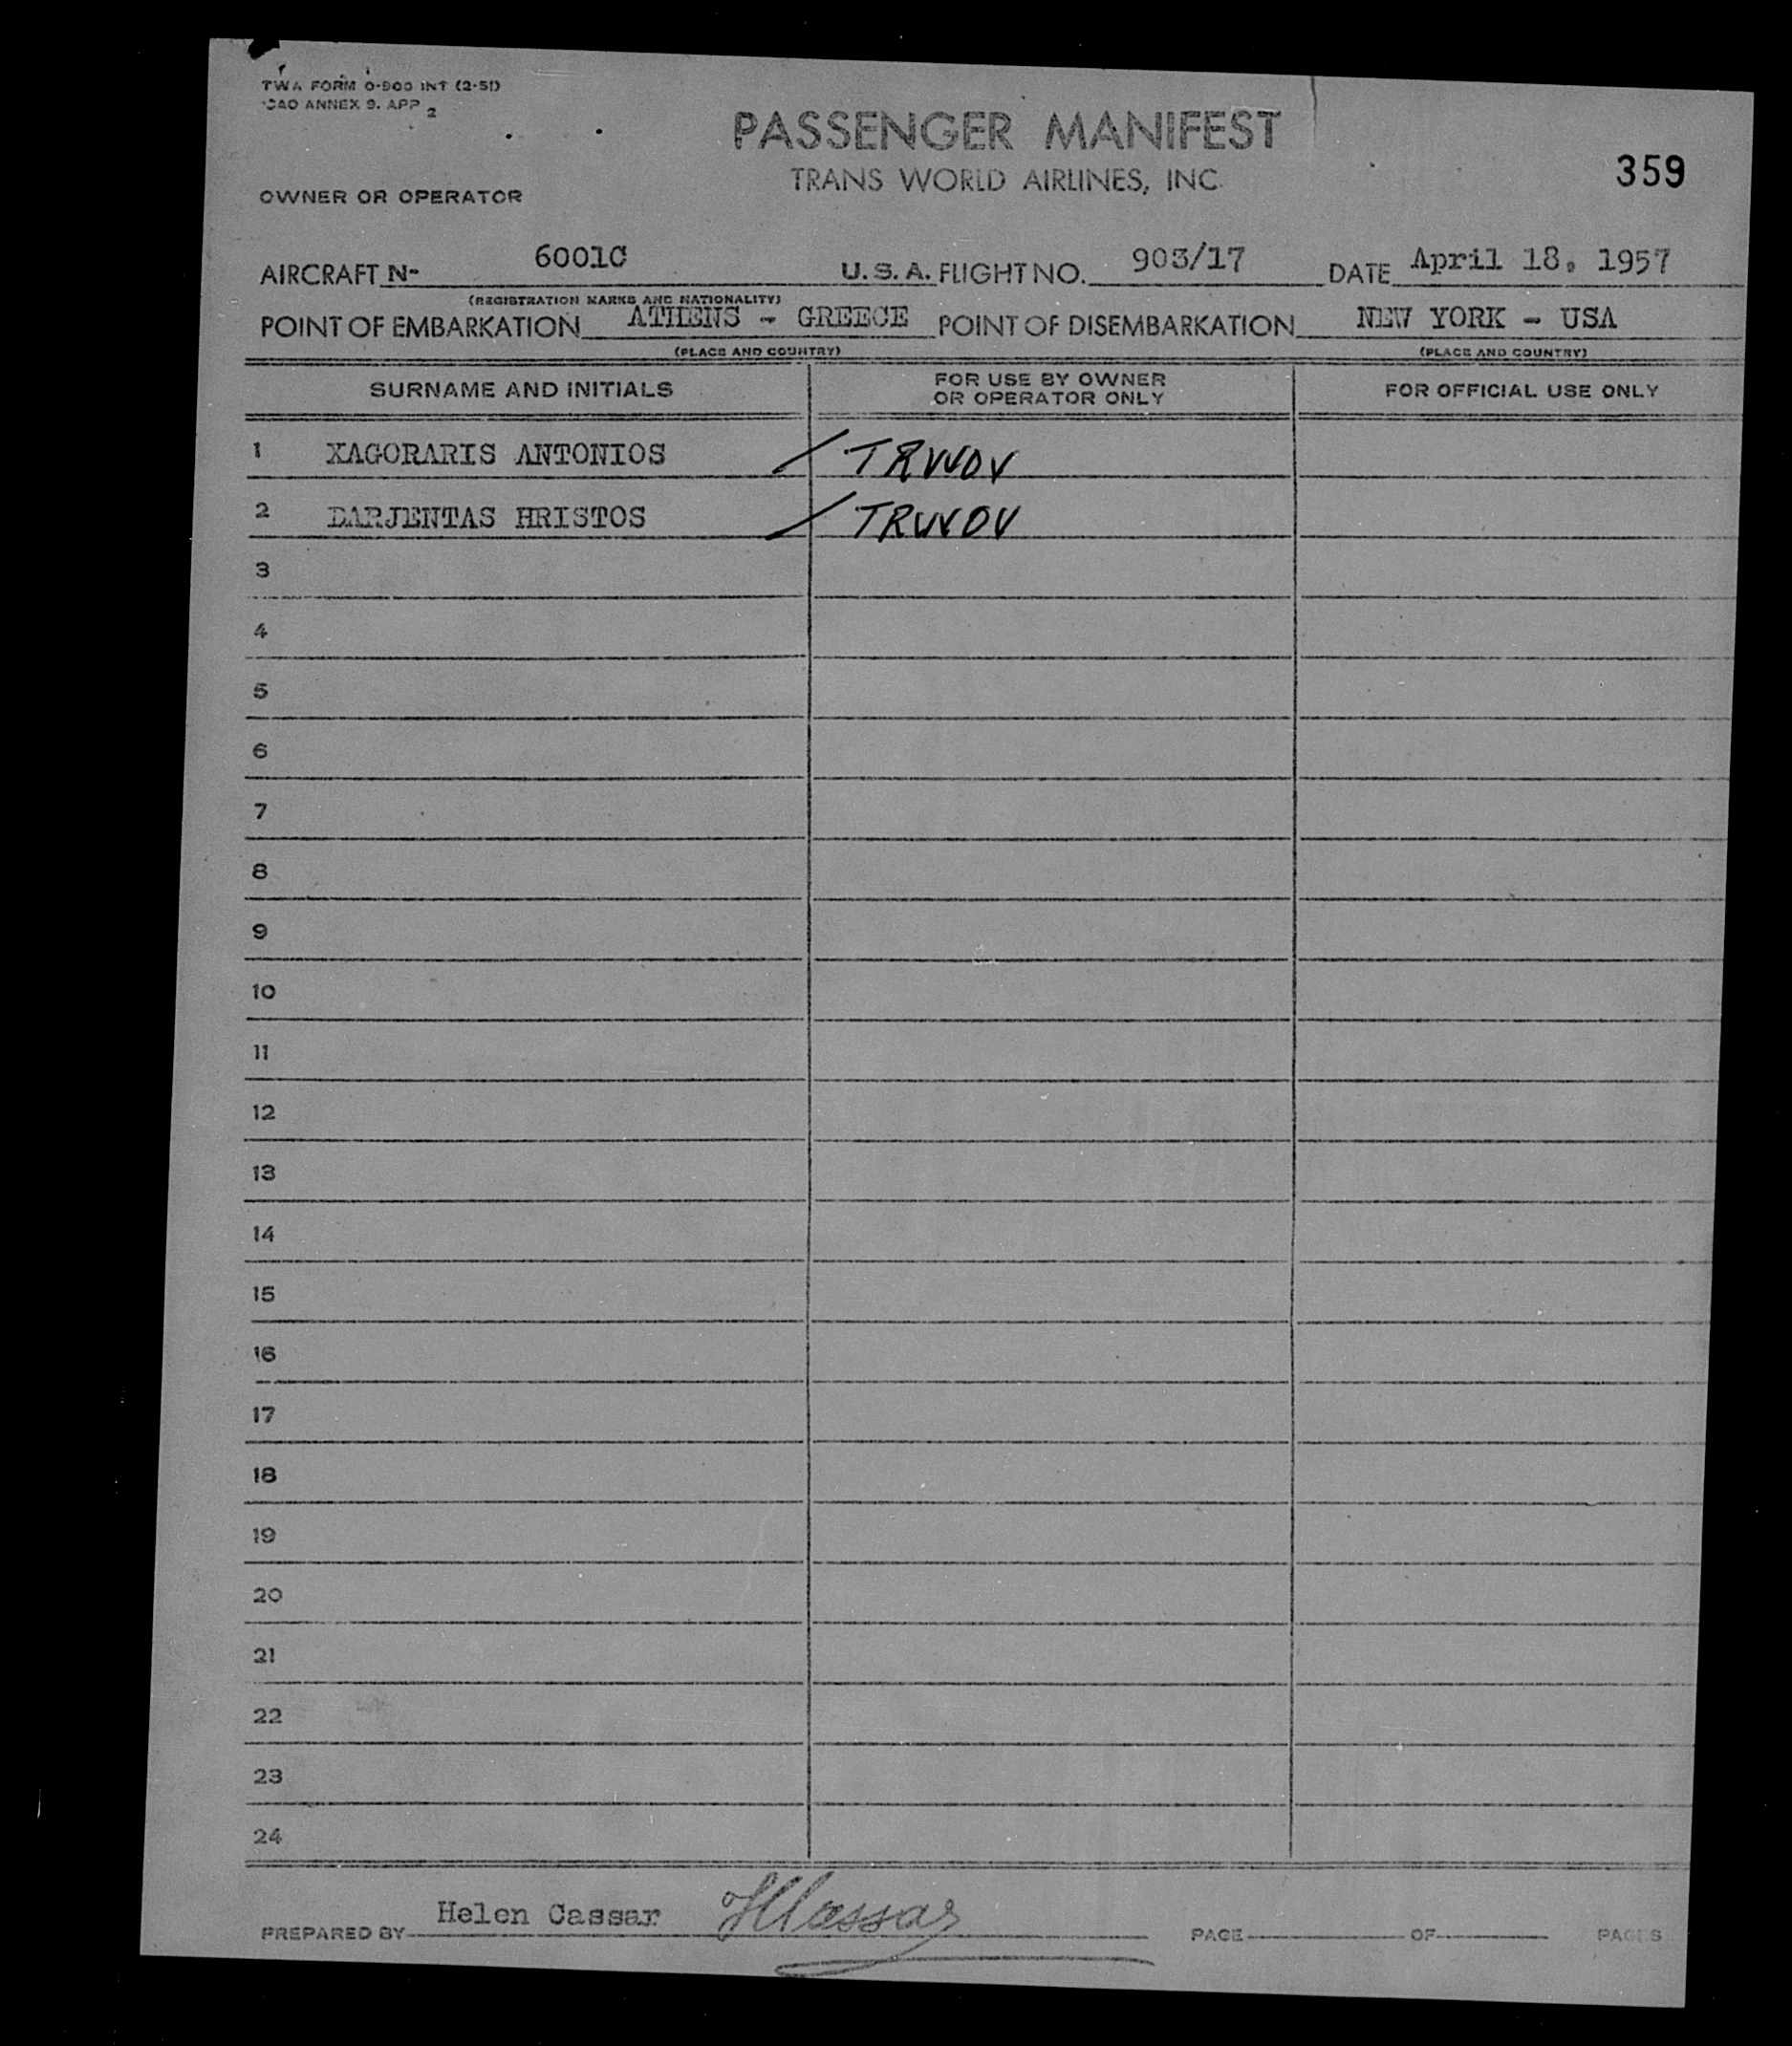 TWA FORM O-900 INT (2-51)
ICAO ANNEX 9. APP 2
PASSENGER MANIFEST
TRANS WORLD AIRLINES, INC.
359
OWNER OR OPERATOR
AIRCRAFT N- 6001C U.S.A. FLIGHT NO. 903/17 DATE April 18, 1957
(REGISTRATION MARKS AND NATIONALITY)
POINT OF EMBARKATION ATHENS - GREECE POINT OF DISEMBARKATION NEW YORK - USA
(PLACE AND COUNTRY) (PLACE AND COUNTRY)
SURNAME AND INITIALS FOR USE BY OWNER OR OPERATOR ONLY FOR OFFICIAL USE ONLY
1 XAGORARIS ANTONIOS / TRWOV
2 DARJENTAS HRISTOS / TRWOV
3
4
5
6
7
8
9
10
11
12
13
14
15
16
17
18
19
20
21
22
23
24
PREPARED BY Helen Cassar HCassar PAGE OF PAGES